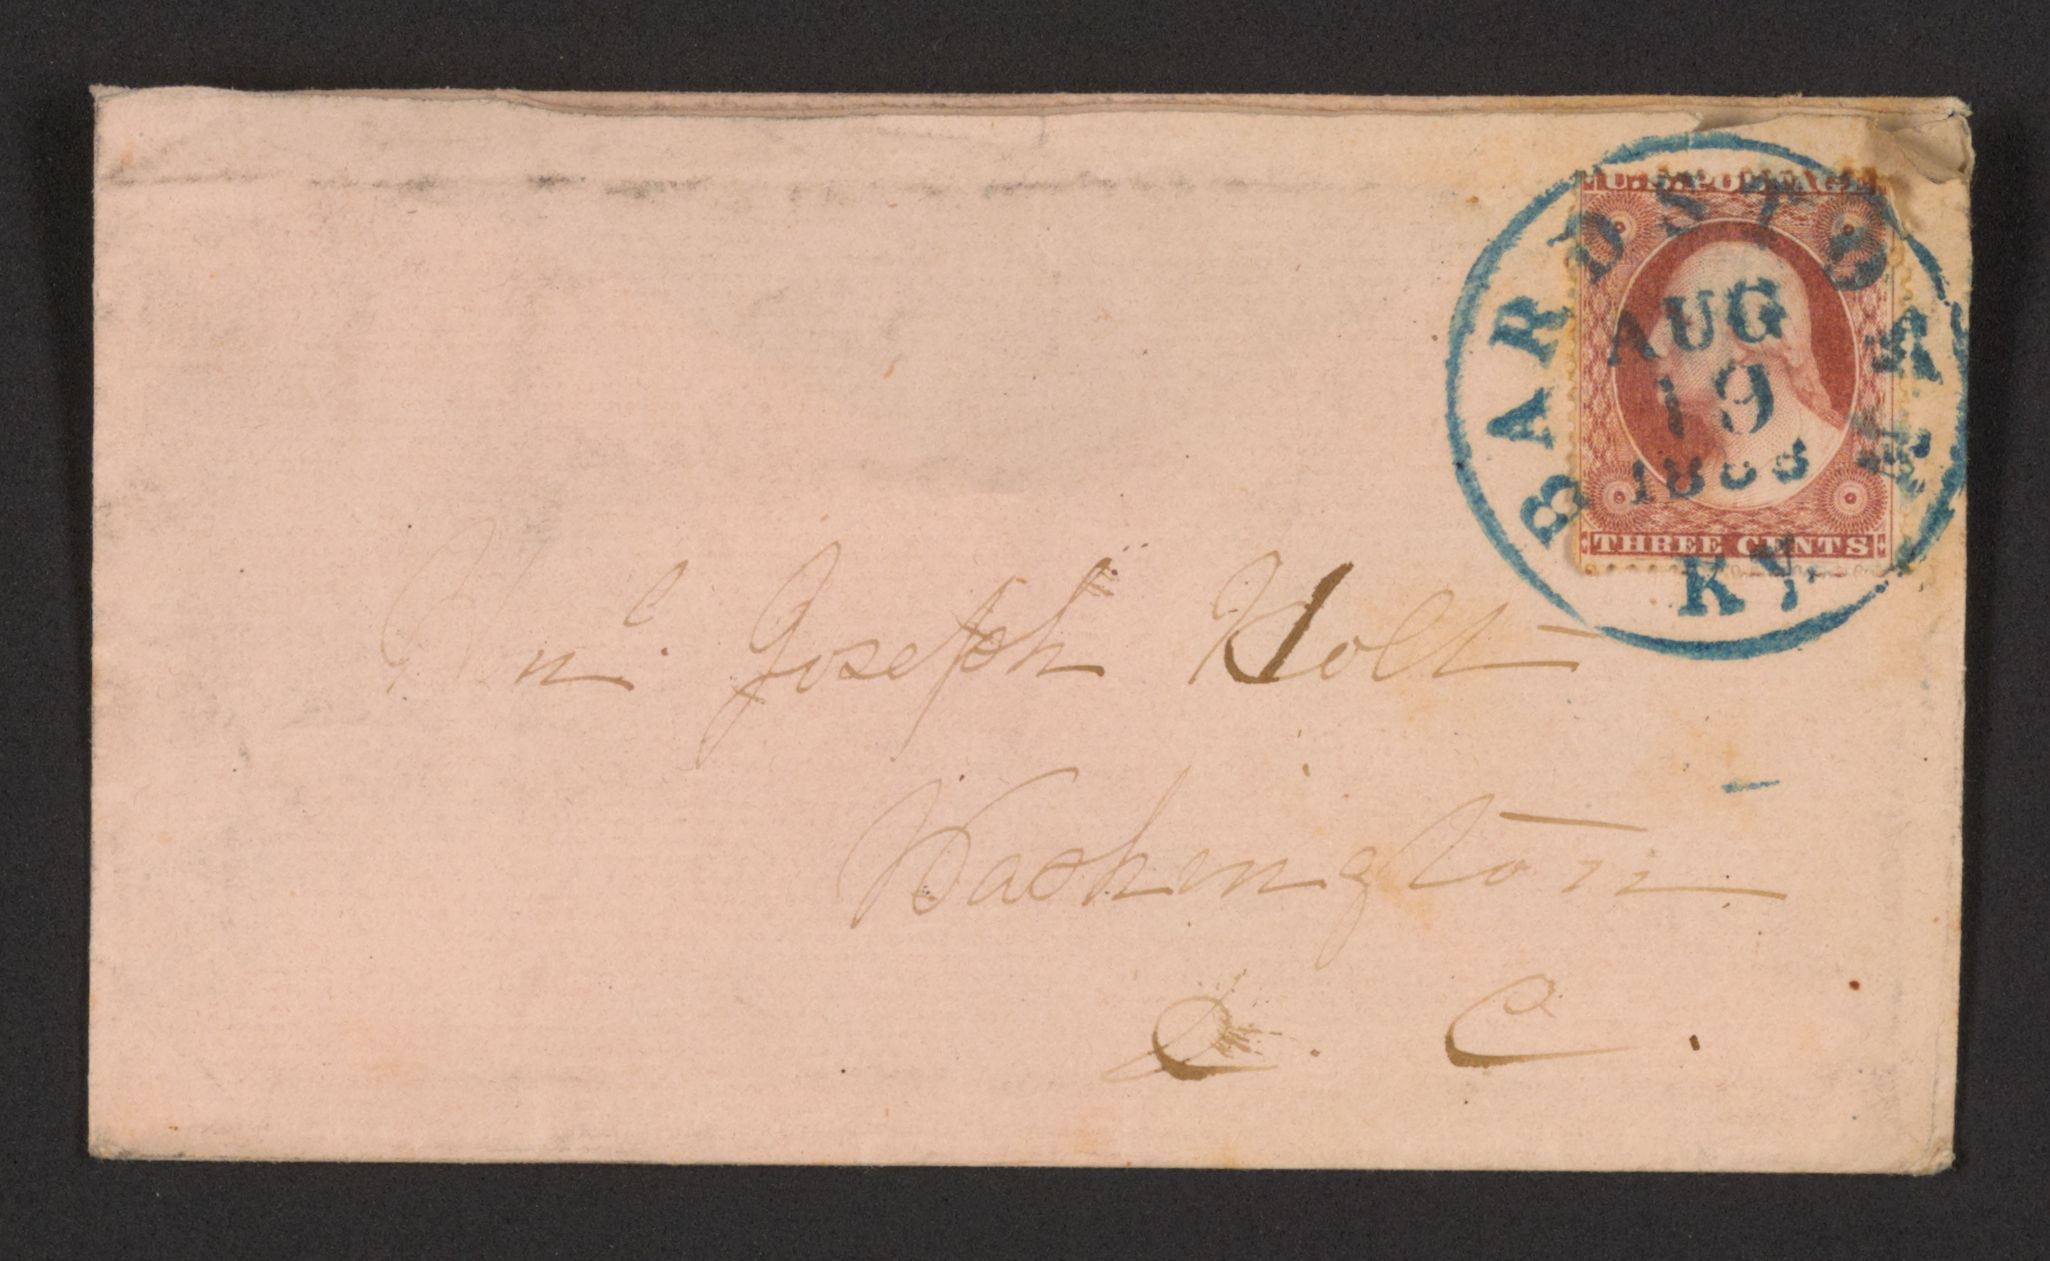 U.S. POSTAGE
BARDSTOWN
AUG
19
THREE CENTS
KY.
Joseph Holt
Washington
D. C.